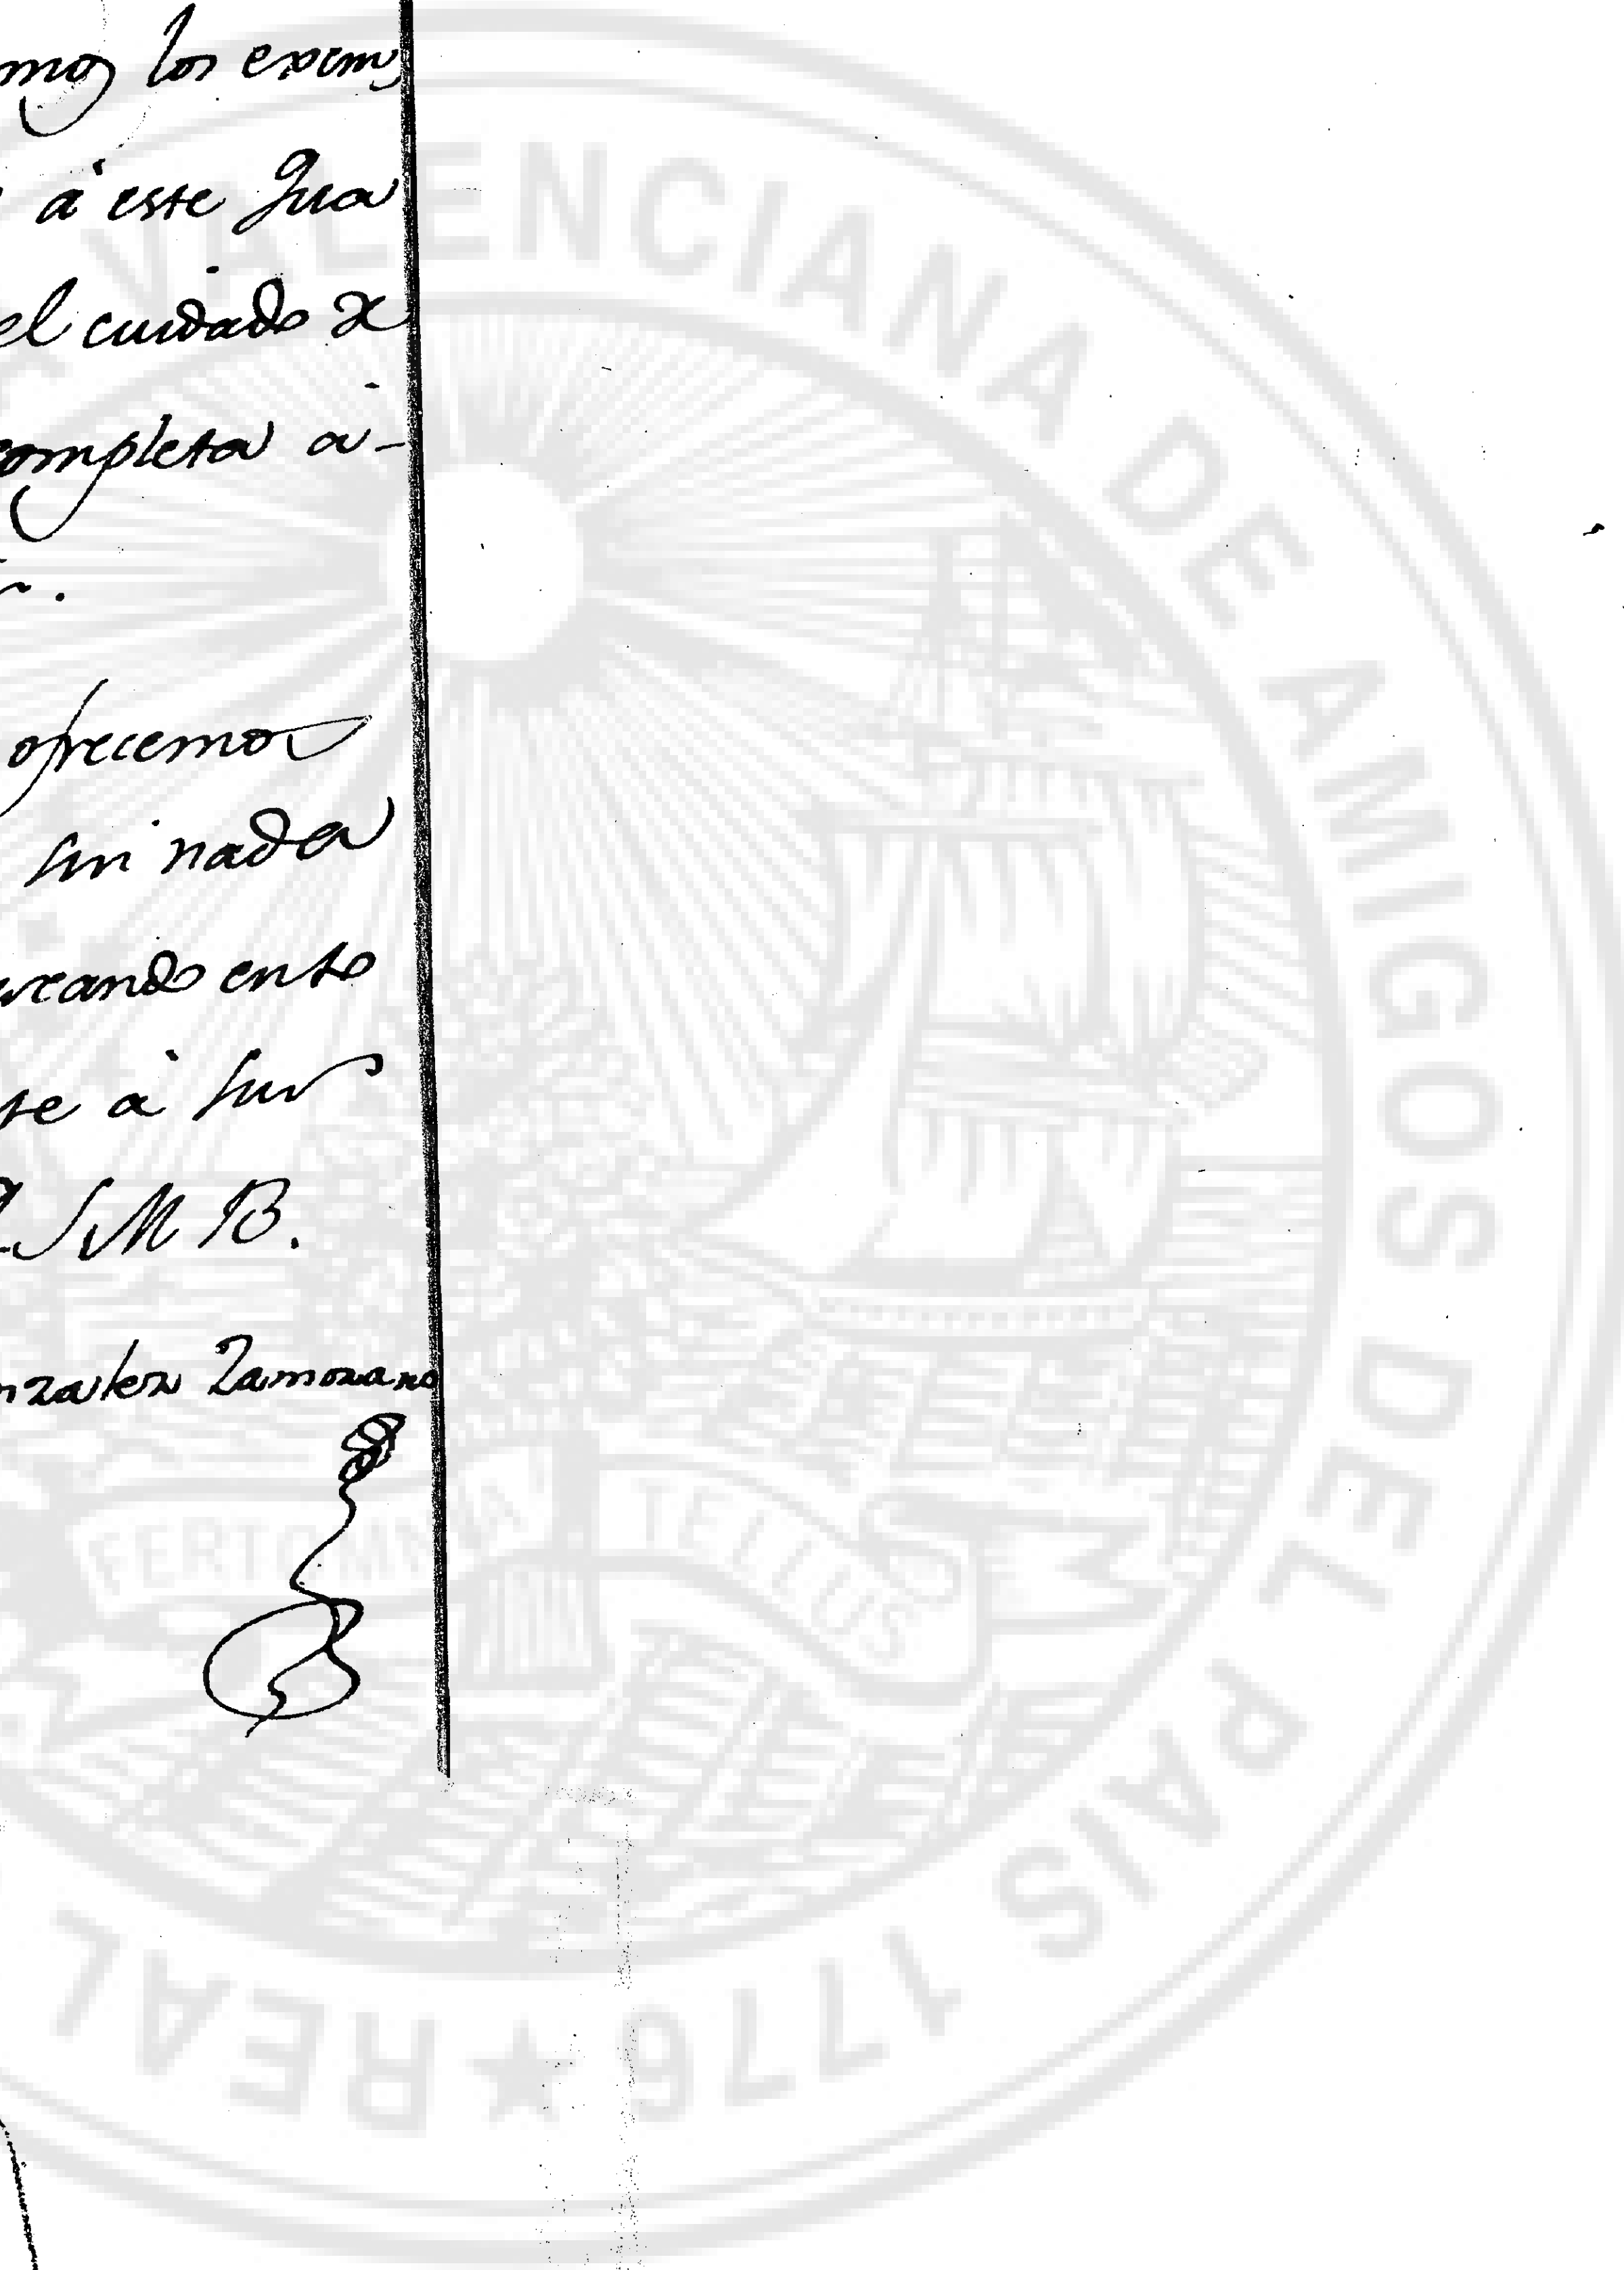 mos los exem
à este Qua
el cuidado de
completa a-
ofrecemos
sin nada
cando en to
te à sus
S M B.
nzalez Zamorano
VALENCIANA DE AMIGOS DEL PAIS 1776 ★ REAL
FERT OMNIA TELLUS